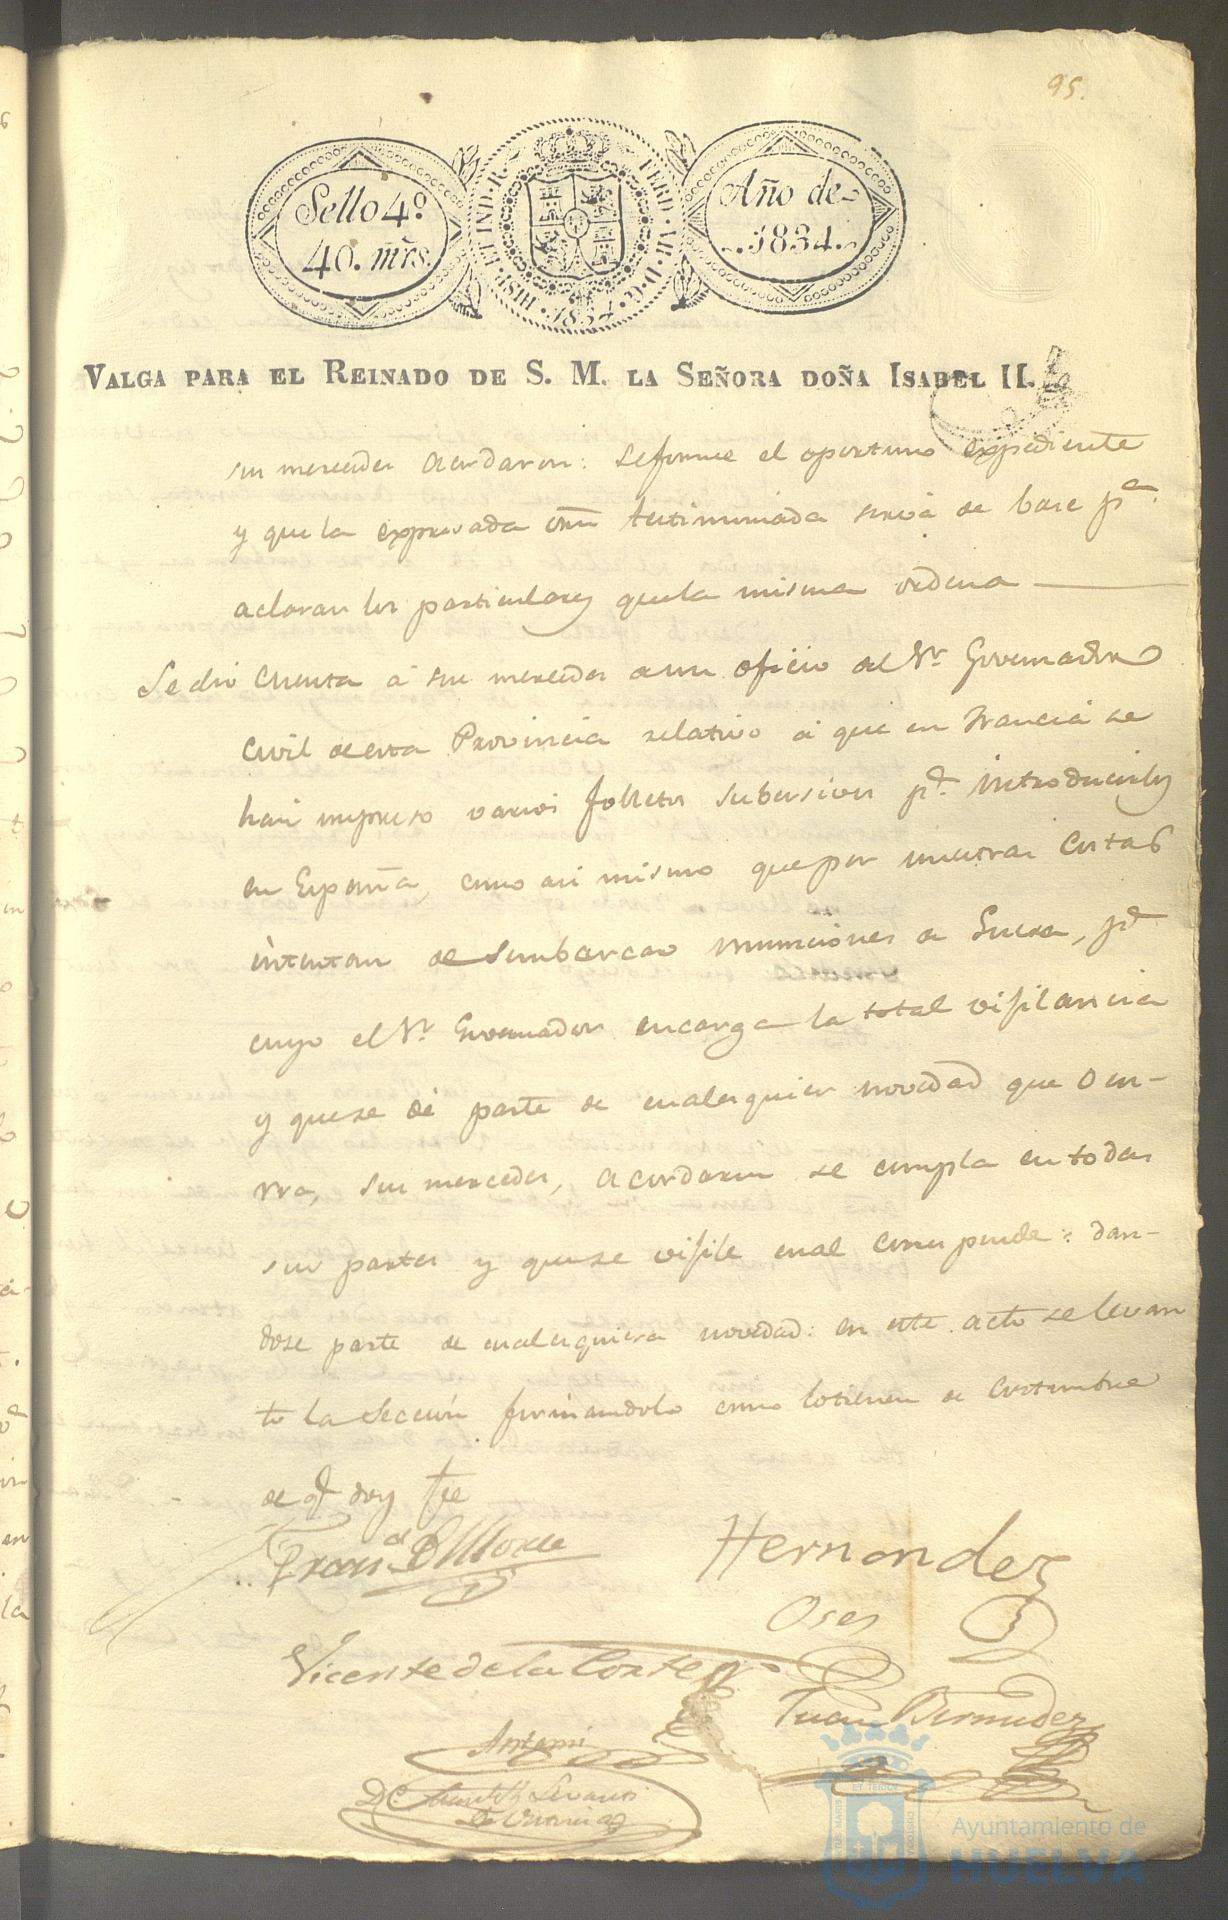 95.
Sello 4º
40. mrs.
HISP. ET IND. R.
FERD. VII. D. G.
1834
Año de
1834.
VALGA PARA EL REINADO DE S. M. LA SEÑORA DOÑA ISABEL II.
sus mercedes acordaron: se forme el oportuno expediente
y que la expresada orn testimoniada sirva de base pª
aclarar los particulares que la misma ordena
Se dio cuenta á sus mercedes de un oficio del Sr Governador
Civil de esta Provincia relativo á que en Francia se
han impreso varios folletos subersivos pª introducirlos
en España, como asi mismo que por nuestras Costas
intentan desembarcar municiones de Guerra, pª
cuyo el Sr Governador encarga la total vijilancia
y que se dé parte de cualesquier novedad que ocu-
rra, sus mercedes, acordaron se cumpla en todas
sus partes y que se vijile cual corresponde: dan-
dose parte de cualesquiera novedad: en este acto se levan
to la Seccion firmandolo como lo tienen de costumbre
de q doy fe
Hernandez
Oses
Vicente de la Corte
Juan Bermudez
Antemi
Ayuntamiento de
HUELVA